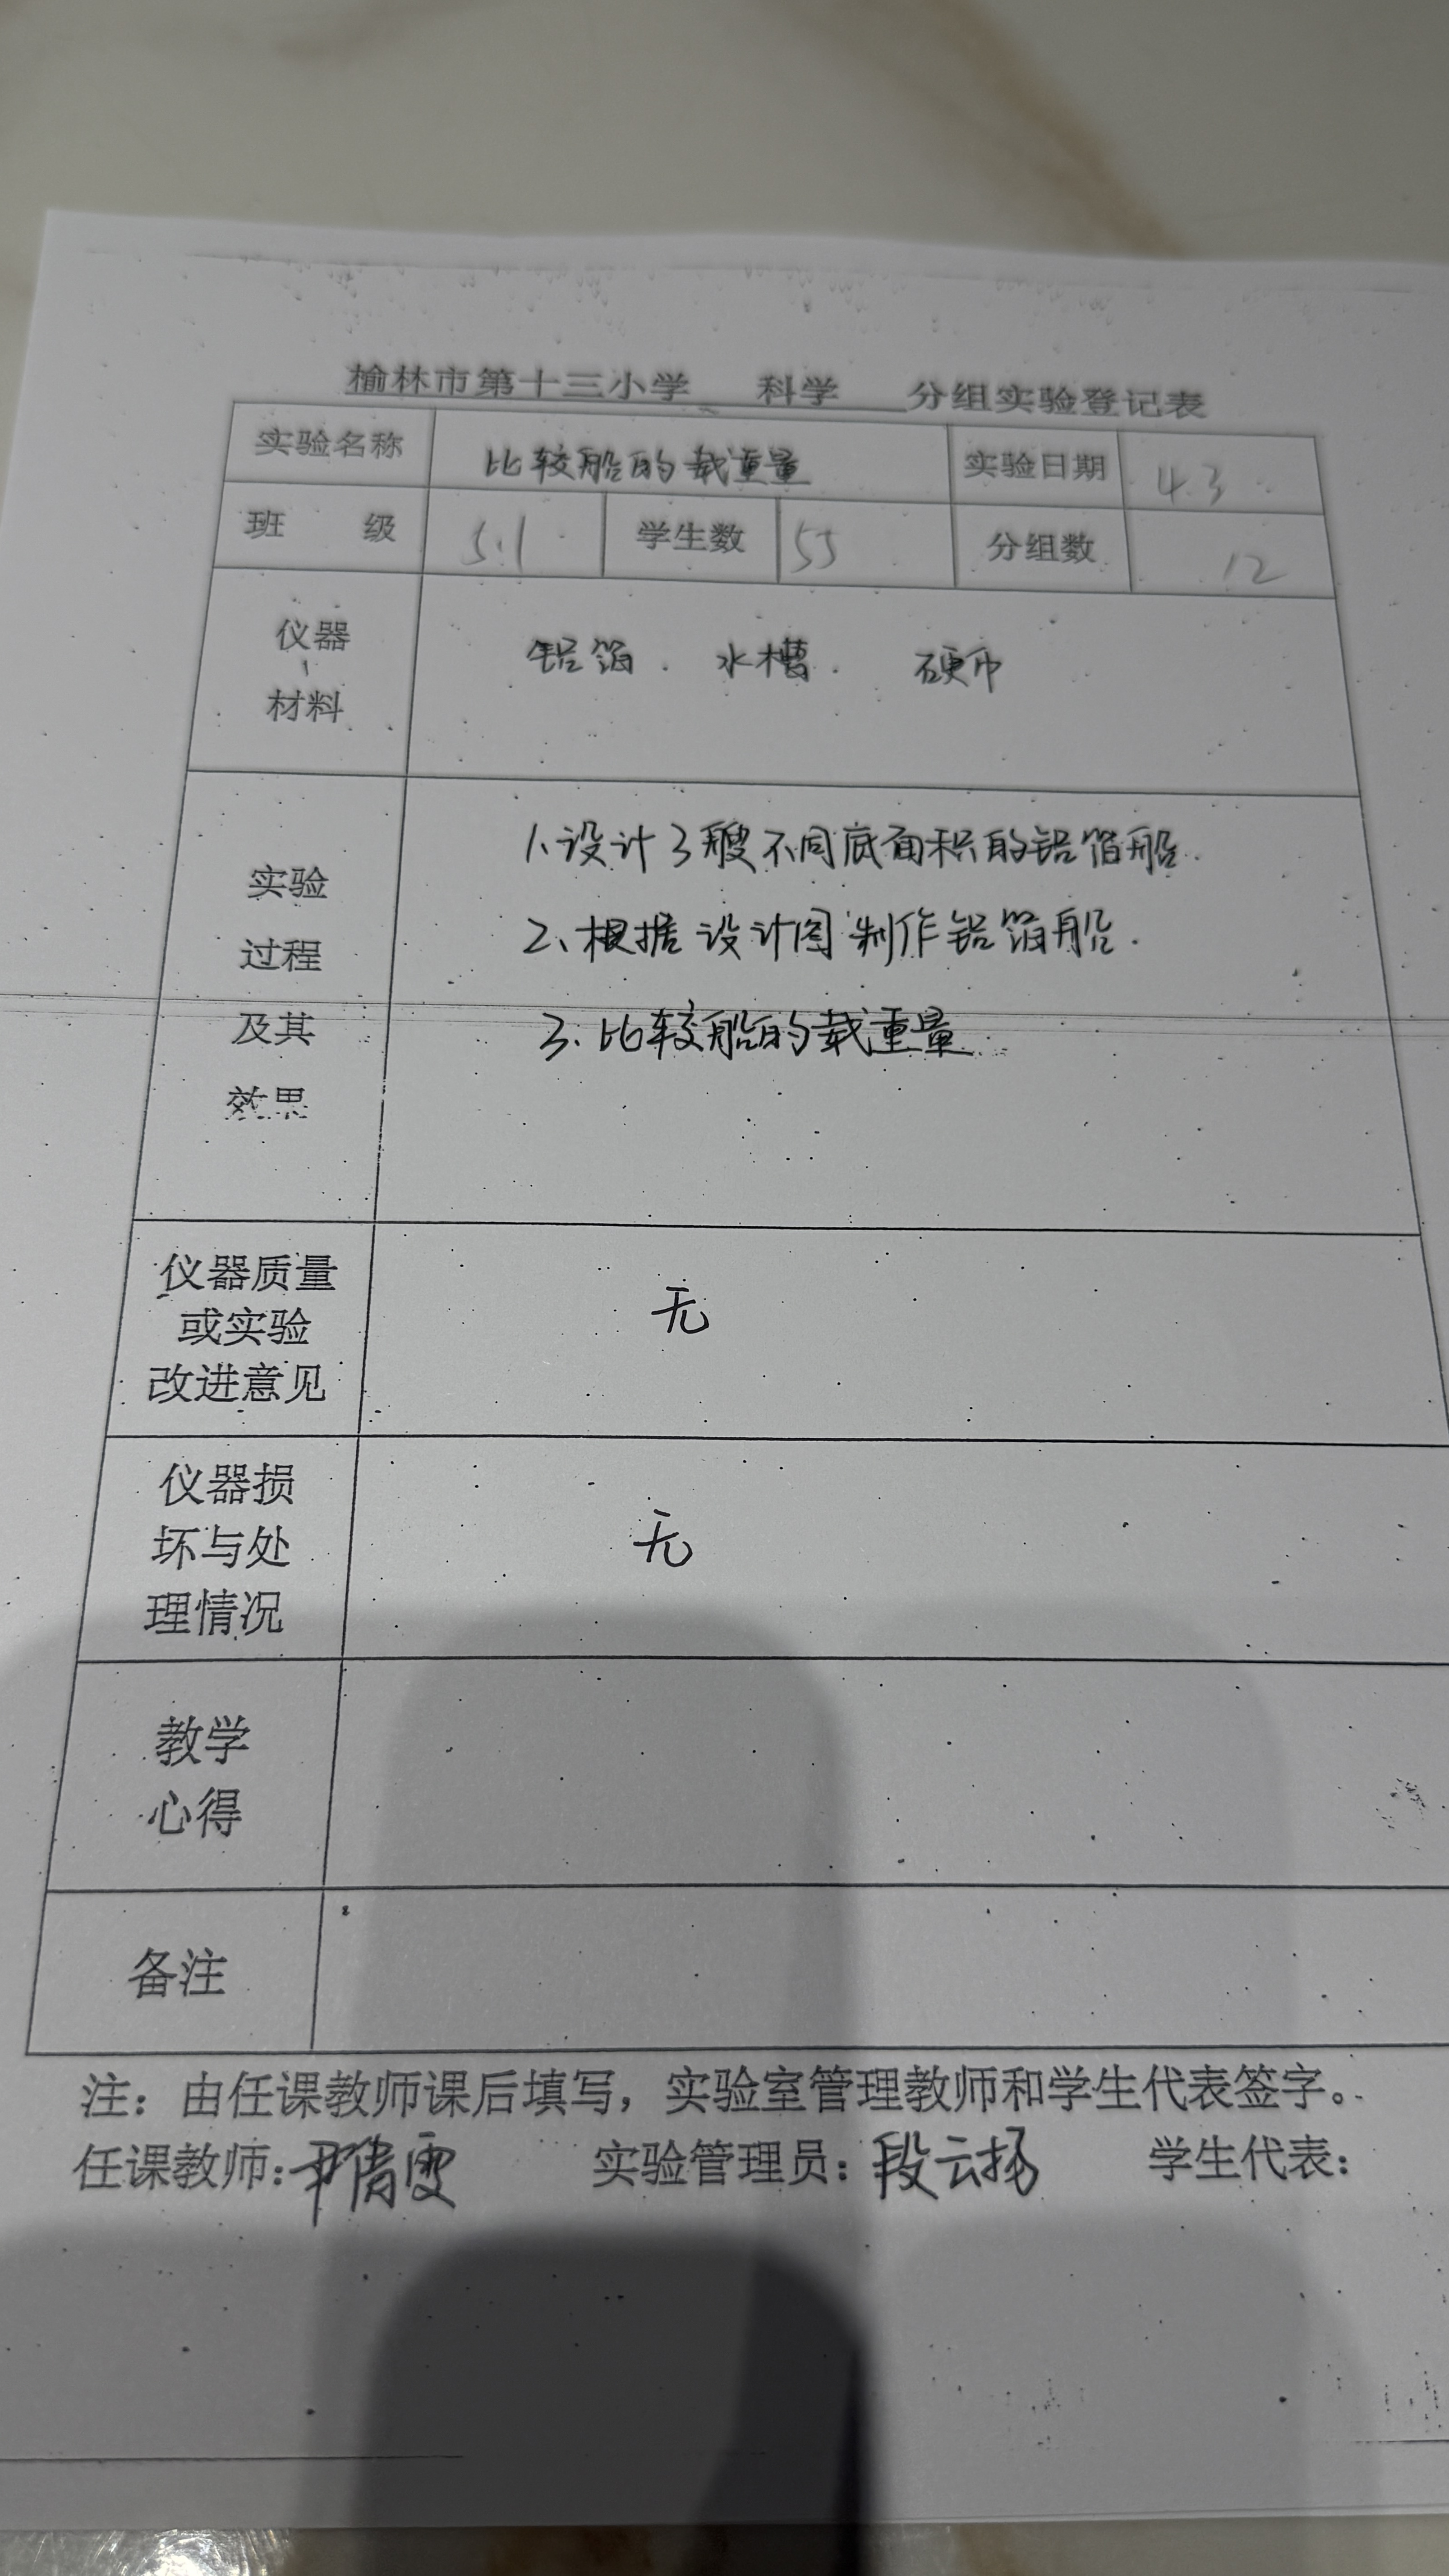 榆林市第十三小学 科学 分组实验登记表
实验名称 比较船的载重量 实验日期 4.3
班 级 5.1 学生数 55 分组数 12
仪器
材料
铝箔. 水槽. 硬币
实验
过程
及其
效果
1.设计3艘不同底面积的铝箔船.
2、根据设计图制作铝箔船.
3.比较船的载重量.
仪器质量
或实验
改进意见
无
仪器损
坏与处
理情况
无
教学
心得
备注
注：由任课教师课后填写，实验室管理教师和学生代表签字。
任课教师: 实验管理员：段云扬 学生代表：